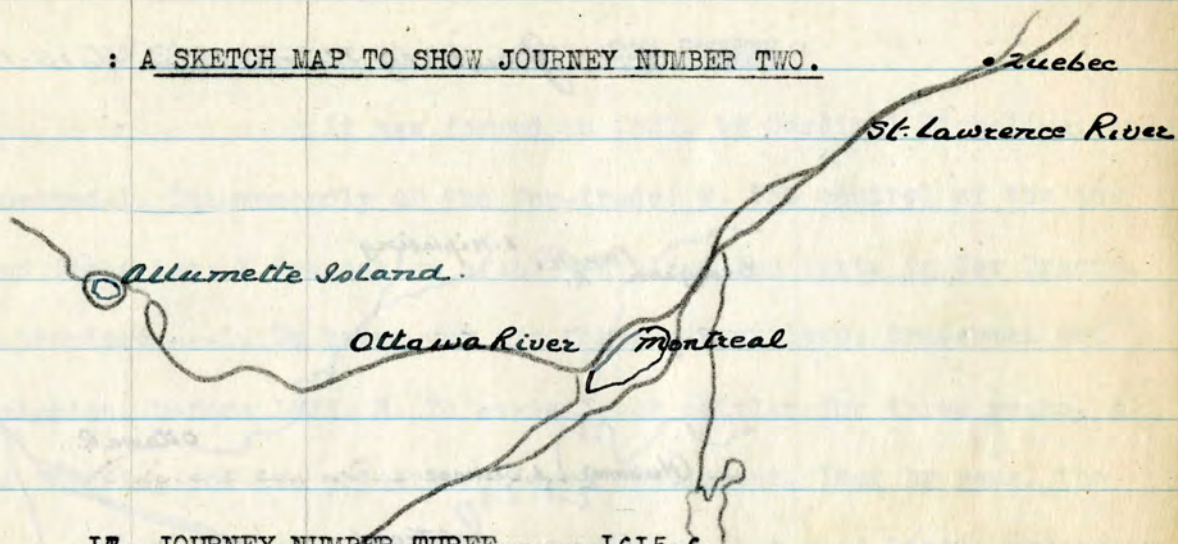 : A SKETCH MAP TO SHOW JOURNEY NUMBER TWO.
Quebec
St. Lawrence River
Allumette Island.
Ottawa River
Montreal
I7. JOURNEY NUMBER THREE 1615-6